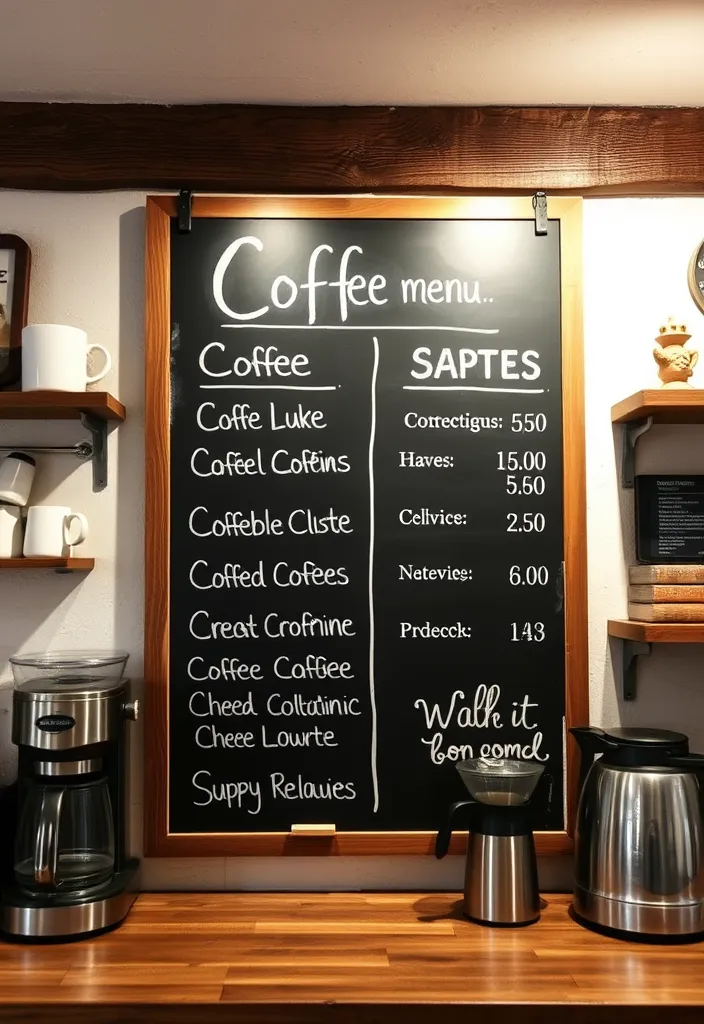 Coffee menu..
Coffee
Coffe Luke
Cofeel Cofeins
Coffeble Cliste
Coffed Cofees
Creat Crofnine
Coffee Caffiee
Cheed Coltatinic
Chee Lourte
Suppy Relauies
SAPTES
Correctigus: 550
Haves: 15.00
5.60
Cellvice: 2.50
Natevies: 6.00
Prdeeck: 143
Walk it
bon comd